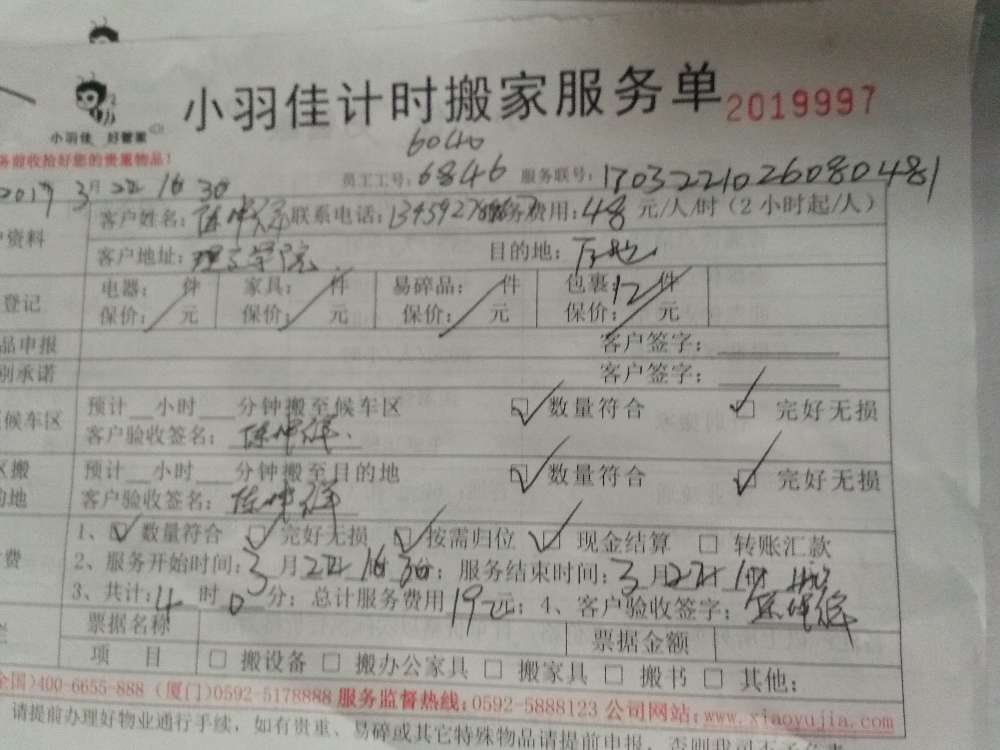 小羽佳计时搬家服务单 2019997
小羽佳 好管家
务前收拾好您的贵重物品!
6040
员工工号: 6846 服务联号: 17032210260804481
2017 3月 22 16 30
资料 客户姓名: 联系电话: 费用: 48 元/人/时 (2小时起/人)
客户地址: 理工学院 目的地:
登记 电器: 件 家具: 件 易碎品: 件 包裹: 12 件
保价: 元 保价: 元 保价: 元 保价: 元
品申报 客户签字:
别承诺 客户签字:
候车区 预计__小时__分钟搬至候车区 ☑ 数量符合 ☑ 完好无损
客户验收签名:
区搬 预计__小时__分钟搬至目的地 ☑ 数量符合 ☑ 完好无损
的地 客户验收签名:
费 1、☑ 数量符合 ☑ 完好无损 ☑ 按需归位 ☑ 现金结算 □ 转账汇款
2、服务开始时间: 3 月 22 16 30; 服务结束时间: 3 月 22
3、共计: 4 时 0 分; 总计服务费用 元; 4、客户验收签字:
票据名称 票据金额
项 目 □ 搬设备 □ 搬办公家具 □ 搬家具 □ 搬书 □ 其他:
全国)400-6655-888 (厦门)0592-5178888 服务监督热线:0592-5888123 公司网站:www.xiaoyujia.com
请提前办理好物业通行手续, 如有贵重、易碎或其它特殊物品请提前申报, 否则我司